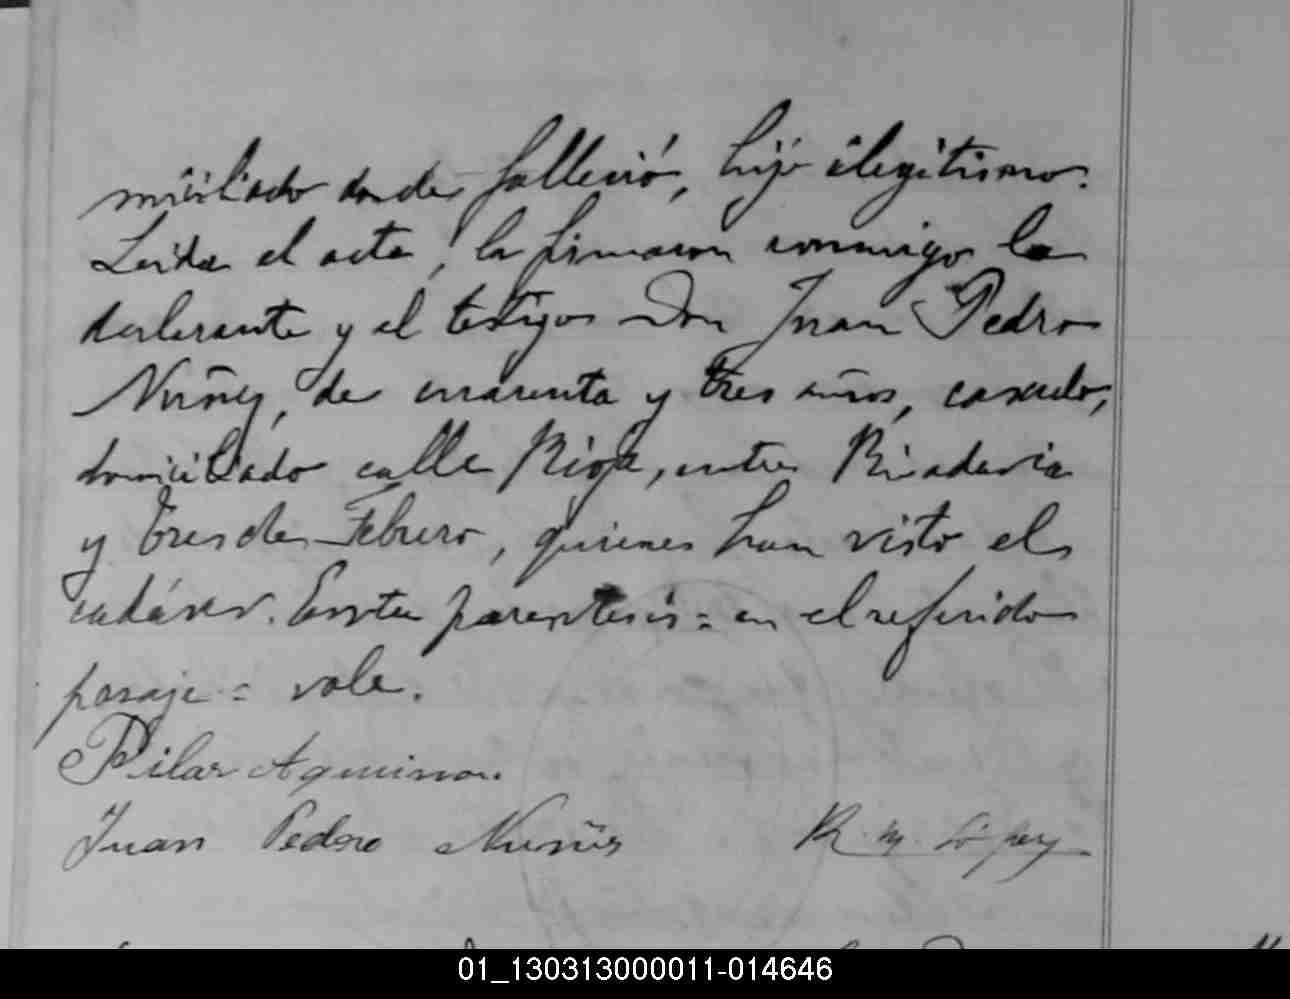 miciliado donde falleció, hijo ilegítimo.
Leida el acta, la firmaron conmigo la
declarante y el testigo Don Juan Pedro
Nuñez, de cuarenta y tres años, casado,
domiciliado calle Rioja, entre Rivadavia
y Tres de Febrero, quienes han visto el
cadáver. Entre parentesis = en el referido
pasaje = vale.
Pilar
Juan Pedro Nuñes
R. M. López
01_130313000011-014646